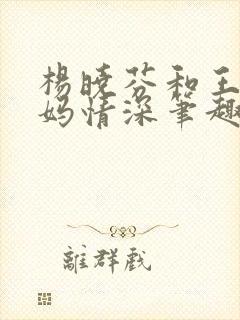 楊曉芬和王
媽情深筆趣
離群戲